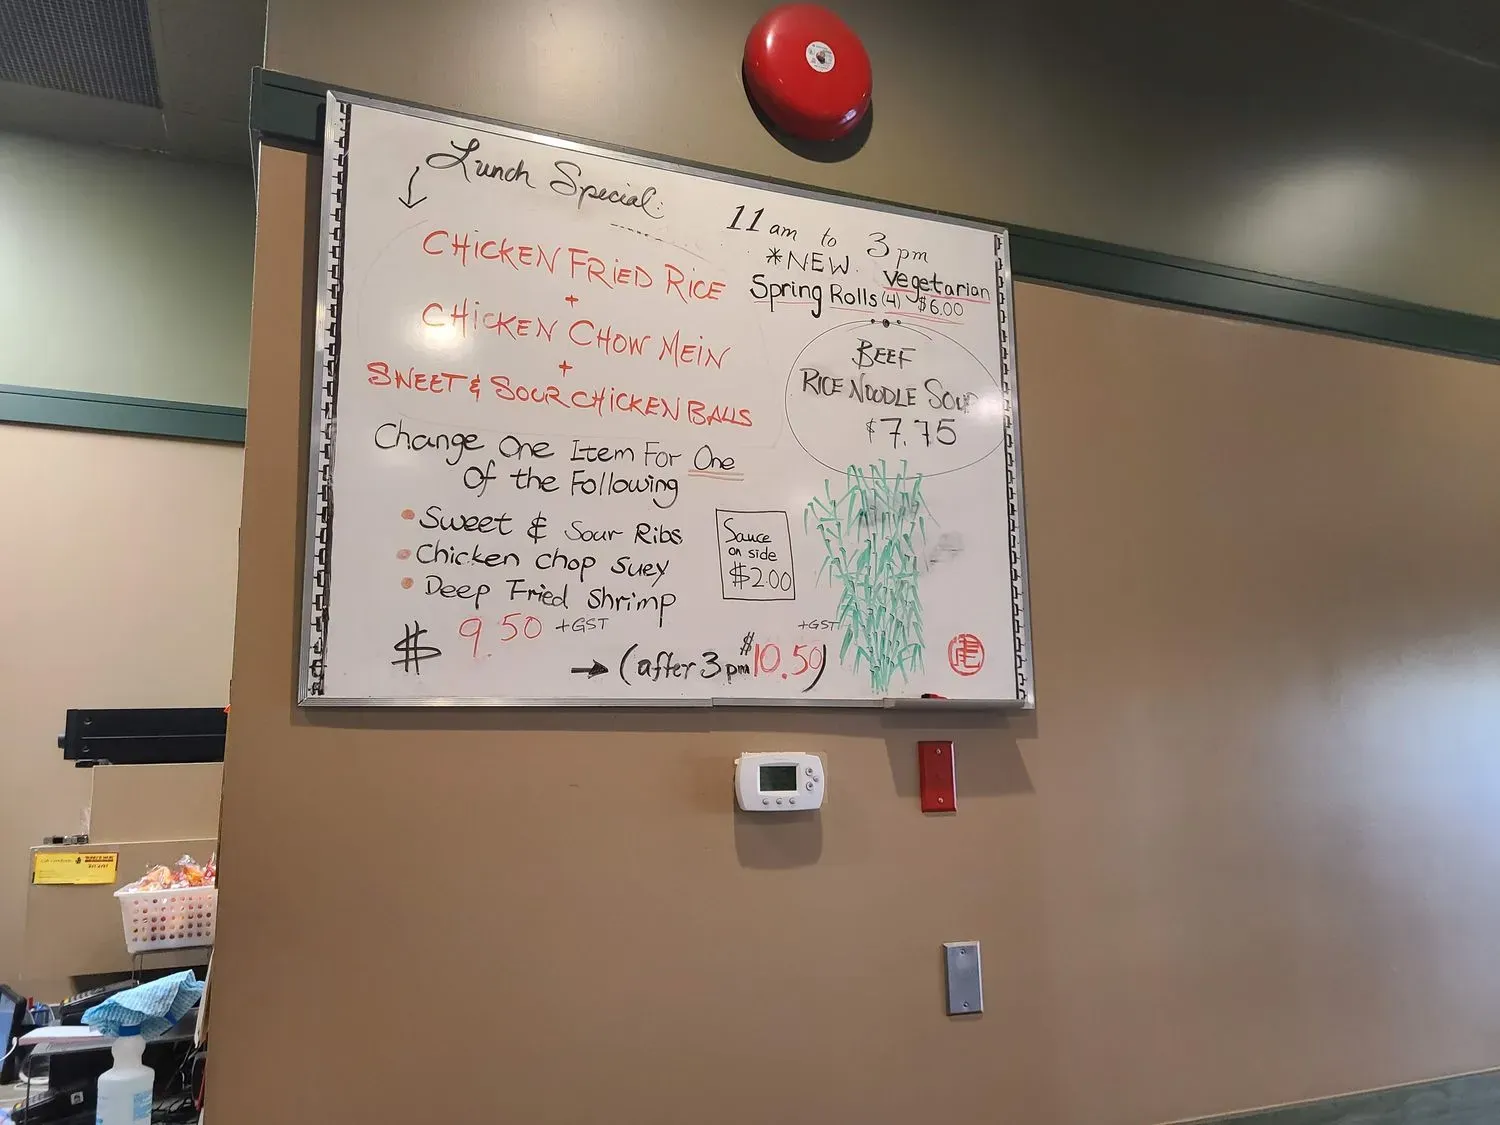 Lunch Special:
11 am to 3 pm
CHICKEN FRIED RICE
+
CHICKEN CHOW MEIN
+
SWEET & SOUR CHICKEN BALLS
Change One Item For One
Of the Following
• Sweet & Sour Ribs
• Chicken Chop Suey
• Deep Fried Shrimp
$ 9.50 +GST
→ (after 3 pm $10.50)
+GST
*NEW. Vegetarian
Spring Rolls (4) $6.00
BEEF
RICE NOODLE SOUP
$7.75
Sauce
on side
$2.00